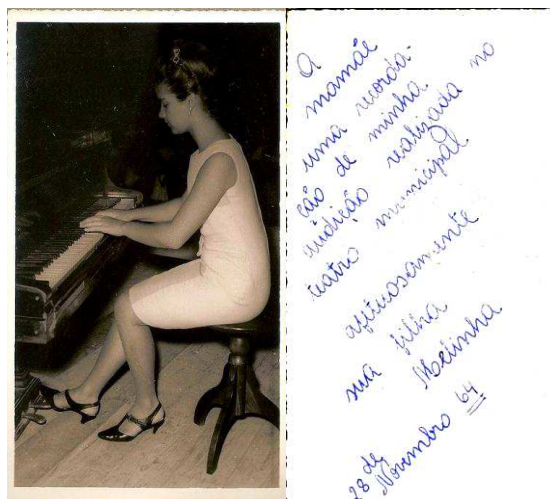 A
mamãe
uma recorda-
ção de minha
audição realizada no
teatro municipal
afetuosamente
sua filha
28 de
Novembro 64